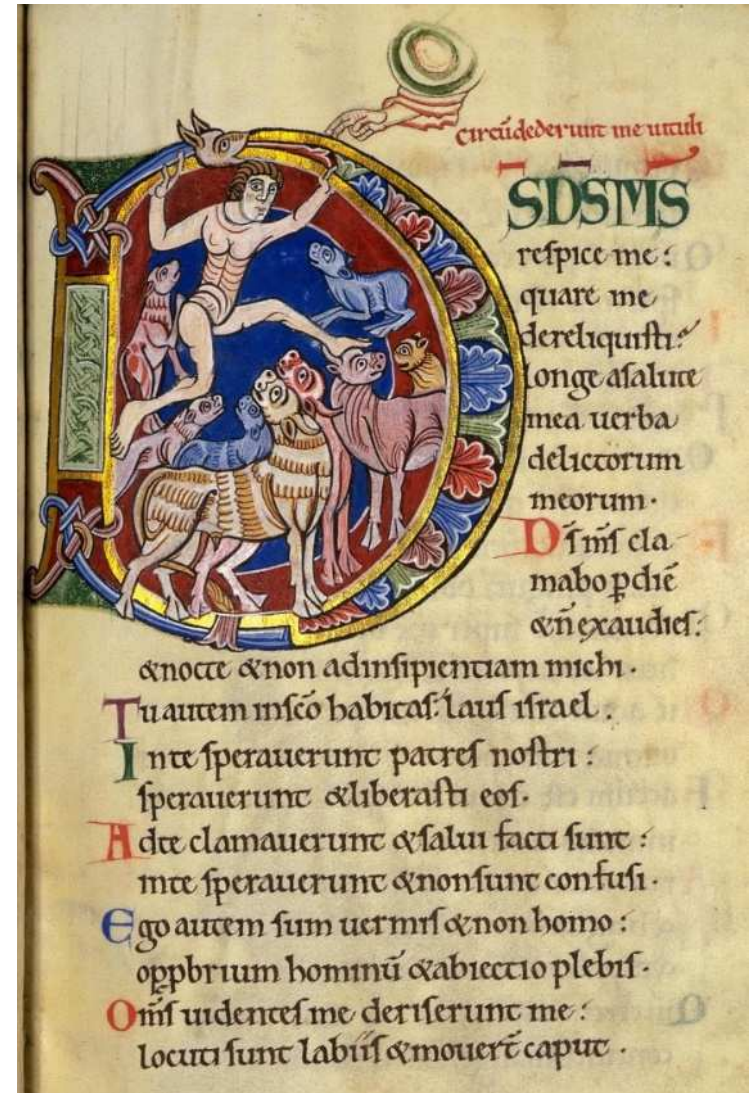 circūdederunt me uituli
DSDSMS
respice me:
quare me
dereliquisti?
longe asalute
mea uerba
delictorum
meorum.
Ds ms cla
mabo ꝑ diē
& n̄ exaudies:
& nocte & non adinsipientiam michi.
Tu autem insc̄o habitas: laus israel.
Inte sperauerunt patres nostri:
sperauerunt & liberasti eos.
Adte clamauerunt & salui facti sunt:
inte sperauerunt & non sunt confusi.
Ego autem sum uermis & non homo:
opp̱brium hominū & abiectio plebis.
Om̄s uidentes me deriserunt me:
locuti sunt labiis & mouert̄ caput.